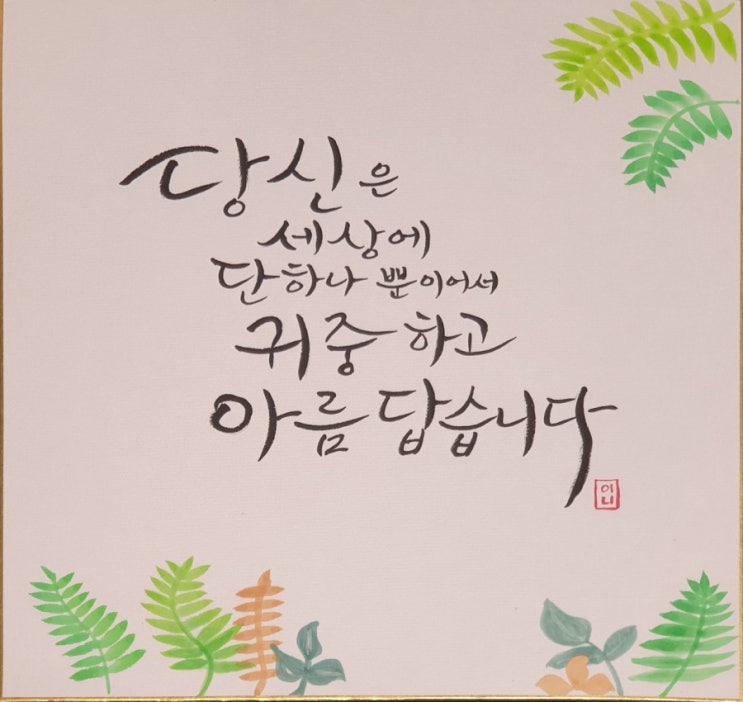 당신은
세상에
단하나 뿐이어서
귀중하고
아름답습니다
이니